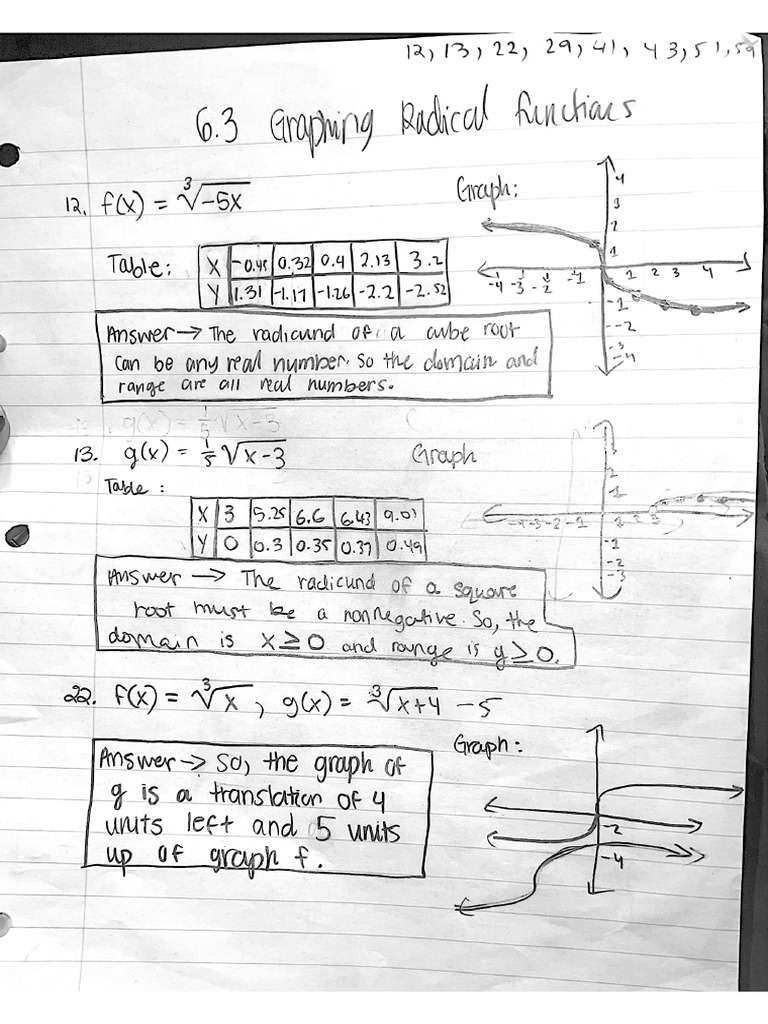 12, 13, 22, 29, 41, 43, 51, 59
6.3 Graphing Radical functions
12. f(x) = ∛-5x
Graph:
Table:
X -0.45 0.32 0.4 2.13 3.2
Y 1.31 -1.17 -1.26 -2.2 -2.52
4
3
2
1
-4 -3 -2 -1 1 2 3 4
-1
-2
-3
-4
Answer → The radicund of a cube root
can be any real number. So the domain and
range are all real numbers.
g(x) = 1/5 √x-3
13. g(x) = 1/5 √x-3
Graph
Table:
X 3 5.25 6.6 6.43 9.01
Y 0 0.3 0.35 0.37 0.49
3
2
1
-4 -3 -2 -1 1 2 3
-1
-2
-3
Answer → The radicund of a square
root must be a nonnegative. So, the
domain is x ≥ 0 and range is y ≥ 0.
22. f(x) = ∛x, g(x) = ∛x+4 - 5
Graph:
Answer → So, the graph of
g is a translation of 4
units left and 5 units
up of graph f.
-2
-4